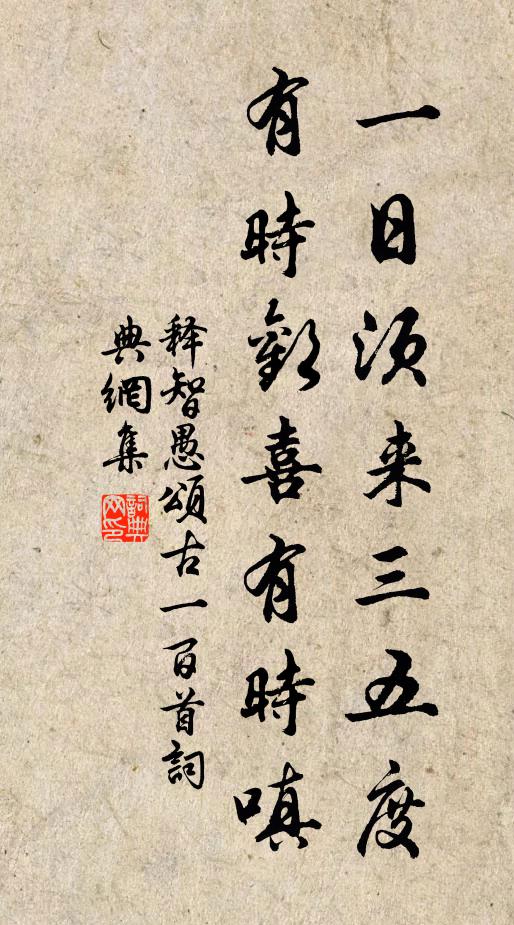 一日须来三五度
有時歡喜有時嗔
释智愚頌古一百首詞
典網集
詞典网印